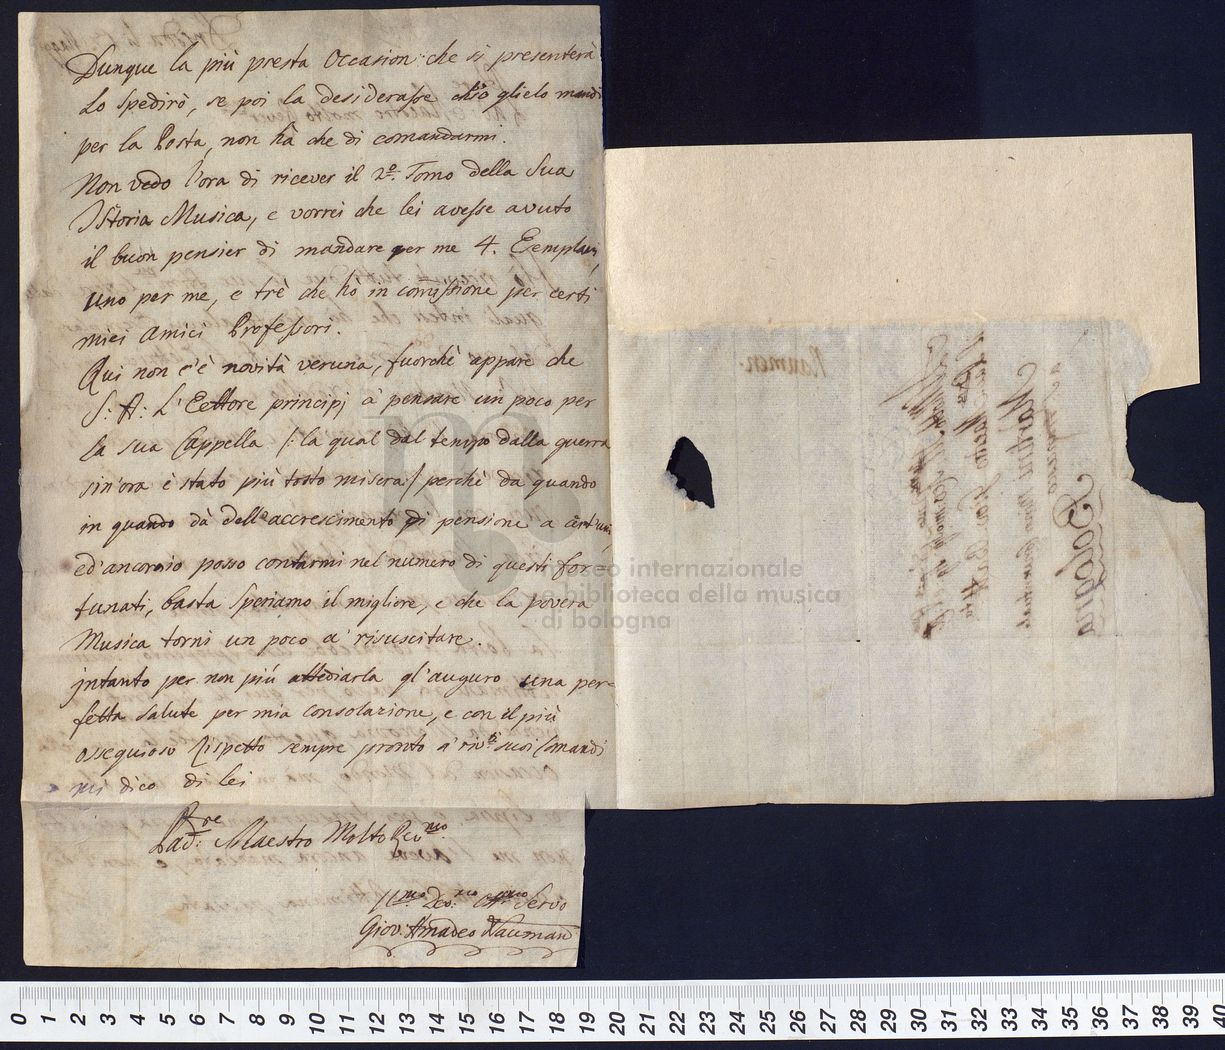 Dunque la più presta occasion: che si presenterà
Lo spedirò, se poi la desiderasse ch'io glielo mandi
per la Posta, non hà che di comandarmi.
Non vedo l'ora di ricever il 2.º Tomo della Sua
Istoria Musica, e vorrei che lei avesse avuto
il buon pensier di mandare per me 4. Exemplari,
uno per me, e trè che hò in comissione per certi
miei Amici Professori.
Qui non c'è novità veruna, fuorchè appare che
S: A: L'Eettore principj à pensare un poco per
la sua Cappella /: la qual dal tempo dalla guerra
sin'ora è stato più tosto misera:/ perchè da quando
in quando dà dell'accrescimento di pensione a
ed'ancor'io posso contarmi nel numero di questi for
tunati, basta speriamo il migliore, e che la povera
Musica torni un poco à risuscitare.
jntanto per non più attediarla gl'auguro una per=
fetta salute per mia consolazione, e con il più
ossequioso rispetto sempre pronto a' riv.ti suoi Comandi
mi dico di lei
Pad:re Maestro Molto Rev.mo
Um.mo Dev:mo Servo
Giov: Amadeo Naumann
Naumann.
Martini
Bologna
museo internazionale
e biblioteca della musica
di bologna
0 1 2 3 4 5 6 7 8 9 10 11 12 13 14 15 16 17 18 19 20 21 22 23 24 25 26 27 28 29 30 31 32 33 34 35 36 37 38 39 40